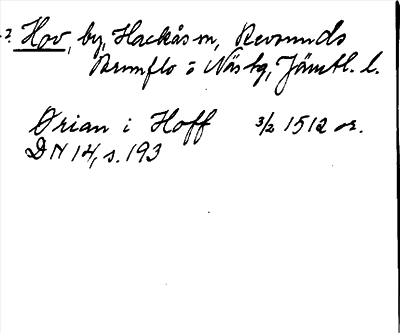 -? Hov, by, Hackås sn, Revsunds
Brunflo o Näs tg, Jämtl. l.
Ørian i Hoff 3/2 1512 or.
DN 14, s. 193